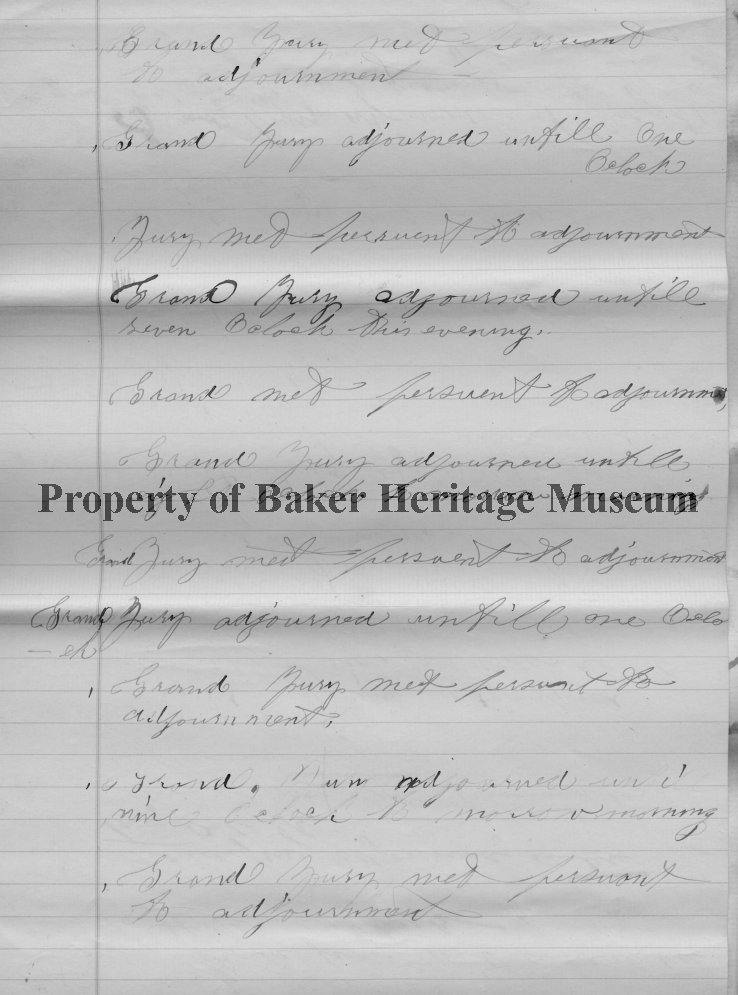 Grand Jury met persuent
to adjournment —
Grand Jury adjourned untill One
Oclock
Jury met persuent to adjournment
Grand Jury adjourned untill
seven Oclock this evening.
Grand met persuent to adjournme
Grand Jury adjourned untill
Oclock to morrow morning
Property of Baker Heritage Museum
Grand Jury met persuent to adjournment
Grand Jury adjourned untill one Oclo
– ck
Grand Jury met persuent to
adjournment.
Grand adjourned unti
nine Oclock to morrow morning
Grand Jury met persuent
to adjournment